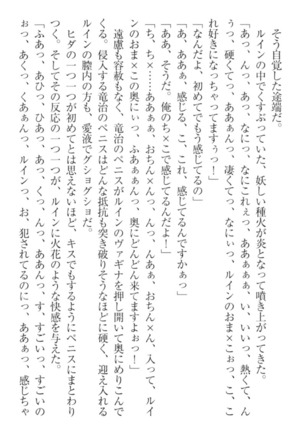 そう自覚した途端だ。
ルインの中でくすぶっていた、妖しい種火が炎となって噴き上がってきた。
「あっ、んっ、あっ、なにっ、なにこれぇっ、ああああっ、い、いいっ、熱くて、ん
っ、硬くてっ、ああぁんっ、凄くてっ、なにぃっ、ルインのおま×こぉっ、こ、こ
れ好きになっちゃってますぅっ！」
「なんだよ、初めてでもう感じてるの」
「あああ、感じる、こ、これ、感じてるんですかぁっ」
「ああ、そうだ。俺のち×こで感じてるんだよ！」
「ち、ち×……ああぁぁ、おちん×んんっ、んっ、んあぁ、おちん×ん、入って、ルイ
ンのおま×この奥にぃっ、ふああぁんっ、奥にどんどん来てますよぉっ！」
遠慮も容赦もなく、竜治のペニスがルインのヴァギナを押し開いて奥にめりこんで
くる。侵入する竜治のペニスはどんな抵抗も突き破りそうなほどに硬く、迎え入れる
ルインの膣内の方も、愛液でグショグショだ。
ヒダの一つ一つが初めてとは思えないほど、キスでもするようにペニスにまとわり
つく。そしてその反応の一つ一つが、ルインに火花のような快感を与えた。
「ふあっ、あひっ、ひあっ、あっ、くっ、んっ、ああんっ、す、すごいっ、すごいの
ぉっ、あっく、くあぁんっ、ルインっ、お、犯されてるのにっ、ああぁっ、感じちゃ